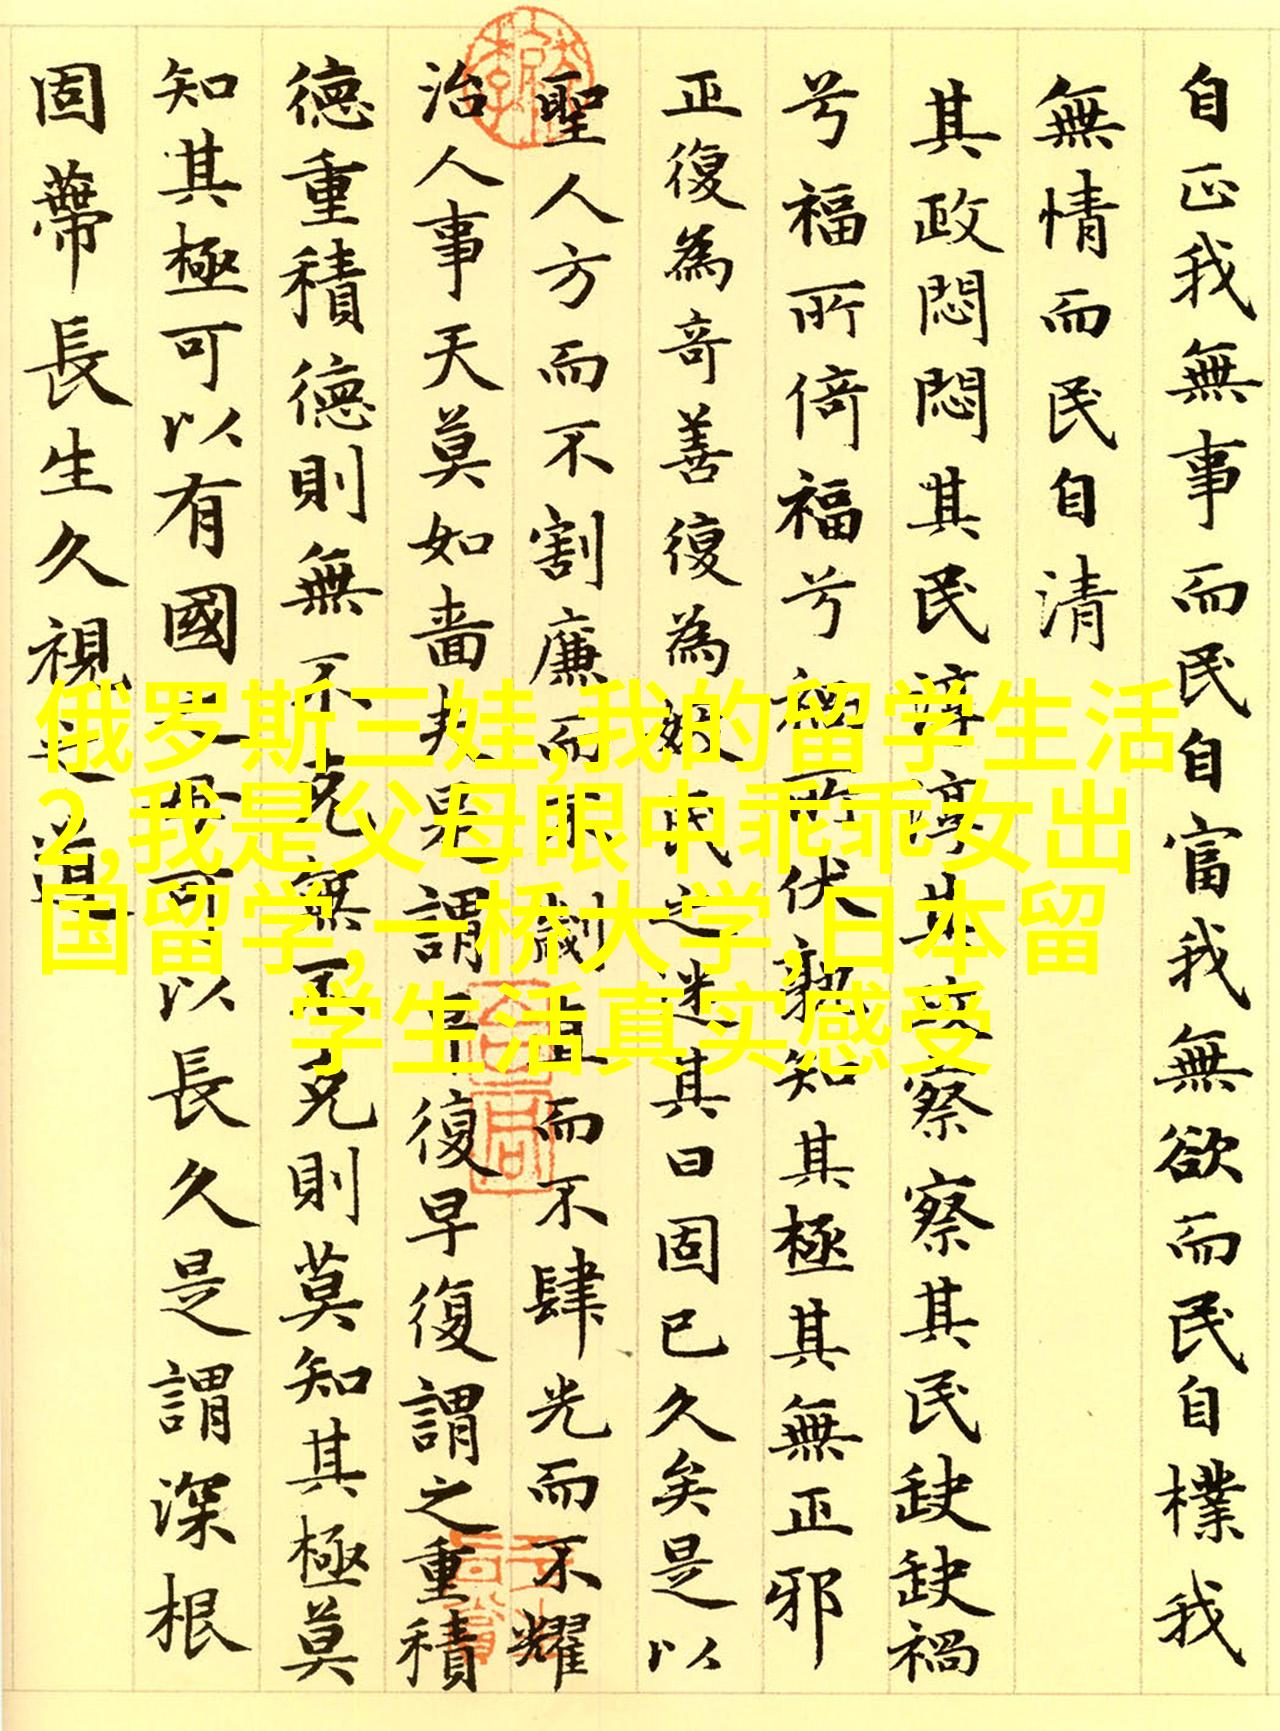 自正我無事而民自富我無欲而民自樸我
無情而民自清
其政悶悶其民淳淳其政察察其民缺缺禍
兮福所倚福兮禍所伏孰知其極其無正邪
正復為奇善復為妖民之迷其日固已久矣是以
聖人方而不割廉而不劌直而不肆光而不耀
治人事天莫如嗇夫果謂早復早復謂之重積
德重積德則無不克無不克則莫知其極莫
知其極可以有國之母可以長久是謂深根
固蔕長生久視之道
俄罗斯三娃,我的留学生活
2,我是父母眼中乖乖女出
国留学,一桥大学,日本留
学生活真实感受